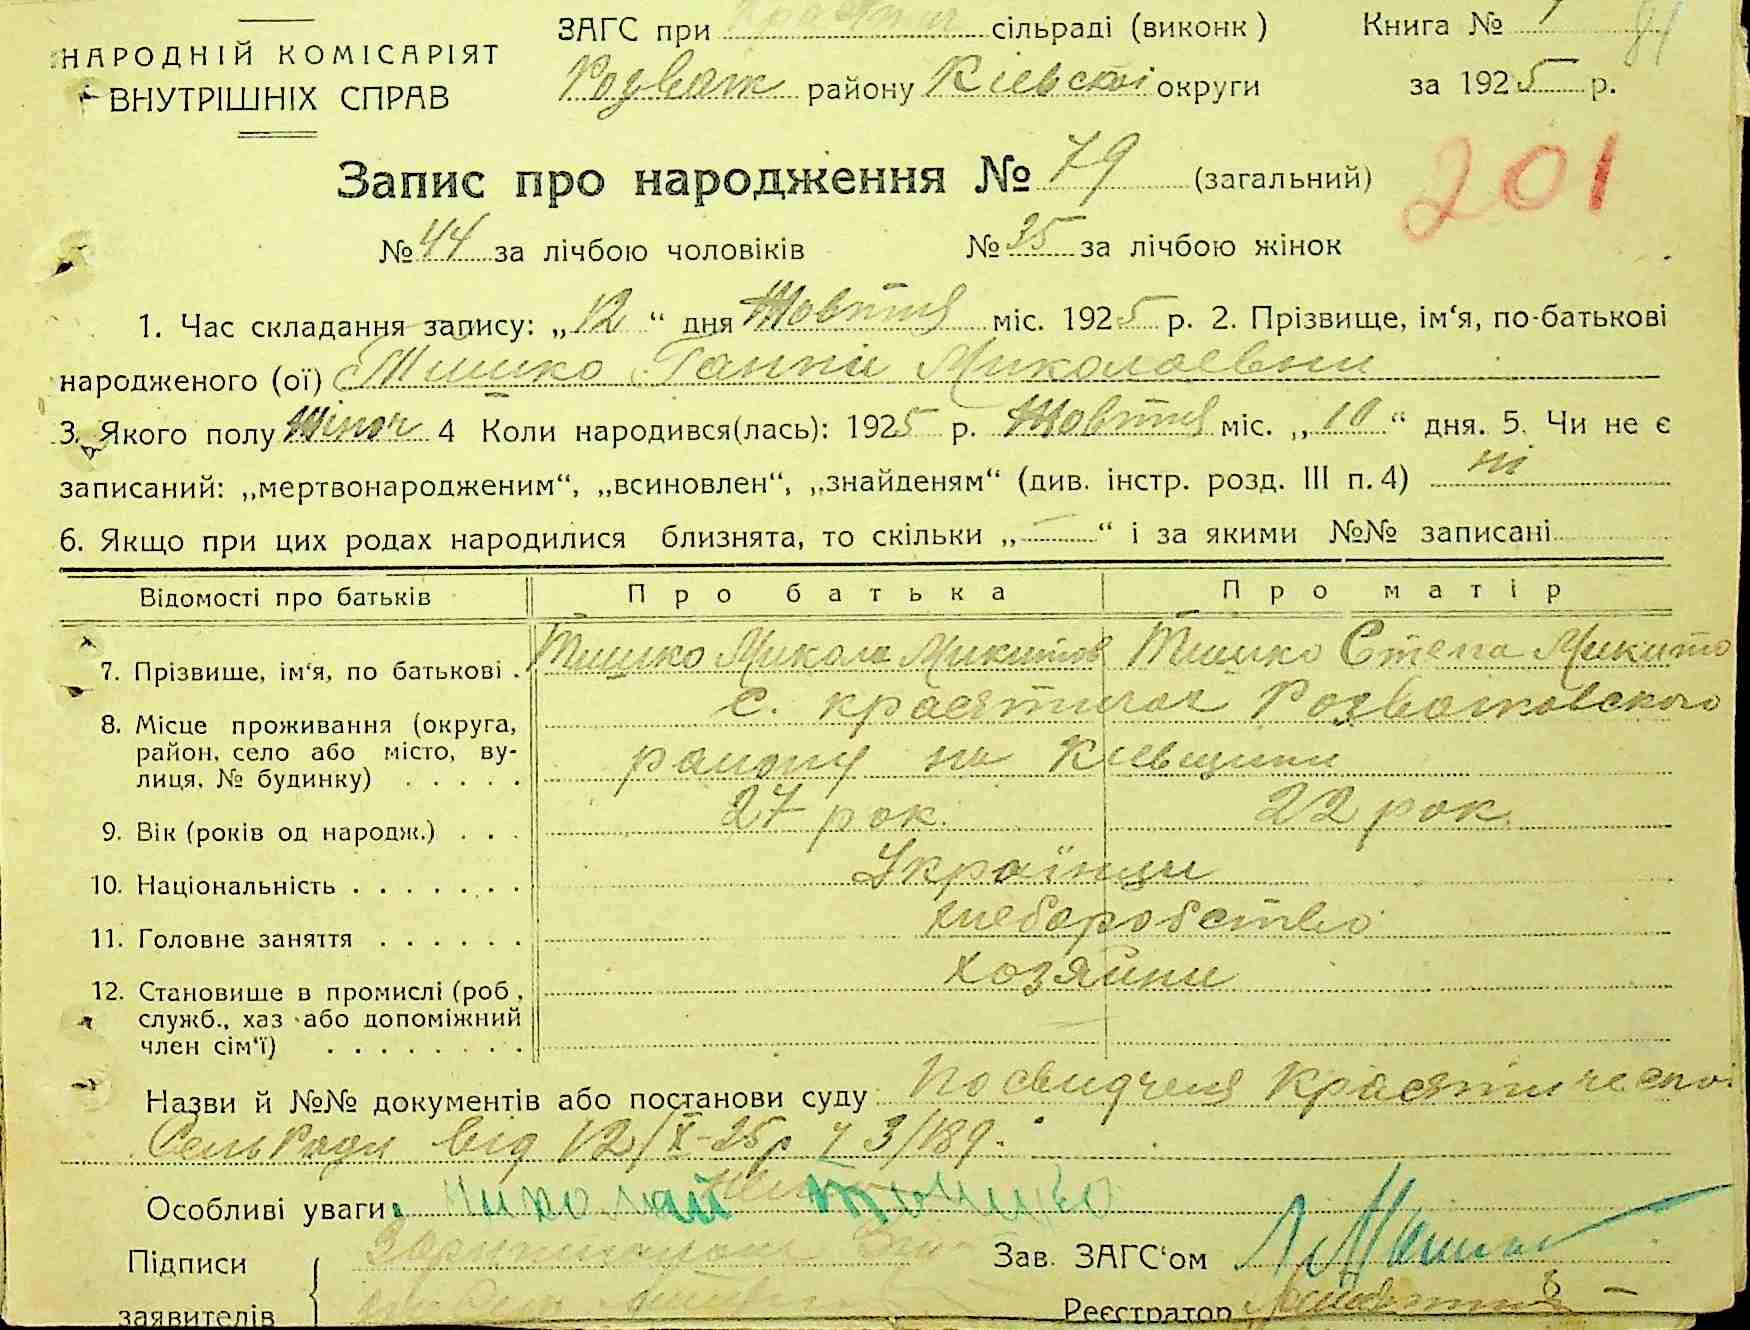 ЗАГС при сільраді (виконк) Книга №
НАРОДНІЙ КОМІСАРІЯТ
ВНУТРІШНІХ СПРАВ
Розваж району Кіевскоі округи за 1925 р.
Запис про народження № 79 (загальний) 201
№ 44 за лічбою чоловіків № 35 за лічбою жінок
1. Час складання запису: „12“ дня Жовтня міс. 1925 р. 2. Прізвище, ім‘я, по-батькові
народженого (ої) Тишко Ганни Миколаевни
3. Якого полу Жіноч 4 Коли народився(лась): 1925 р. Жовтня міс. „10“ дня. 5. Чи не є
записаний: „мертвонародженим“, „всиновлен“, „знайденям“ (див. інстр. розд. III п. 4) ні
6. Якщо при цих родах народилися близнята, то скільки „—“ і за якими №№ записані
Відомості про батьків Про батька Про матір
7. Прізвище, ім‘я, по батькові . Тишко Микола Микитов Тишко Степа Микито
8. Місце проживання (округа, с. Красятичах Розважовского
район, село або місто, ву-
лиця, № будинку) . . . . . району на Кіевщини
9. Вік (років од народж.) . . . 27 рок. 22 рок.
10. Національність . . . . . . . Українци
11. Головне заняття . . . . . . хлеборобство
12. Становище в промислі (роб., хозяйни
служб., хаз або допоміжний
член сім‘ї) . . . . . . . .
Назви й №№ документів або постанови суду Посвидченя Красятическоі
СельРади від 12/X-25р ч 3/189.
Особливі уваги: Николай Тишко
Підписи Зав. ЗАГС‘ом
заявителів Реєстратор